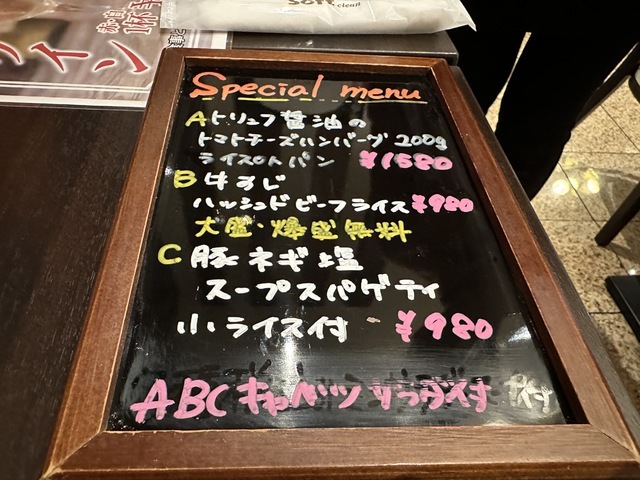 SOFT clean
赤・白
1杯
ワイン
Special menu
A トリュフ醤油の
トマトチーズハンバーグ 200g
ライスorパン ¥1580
B 牛すじ
ハッシュドビーフライス ¥980
大盛・爆盛無料
C 豚ネギ塩
スープスパゲティ
小ライス付 ¥980
ABC キャベツサラダ付